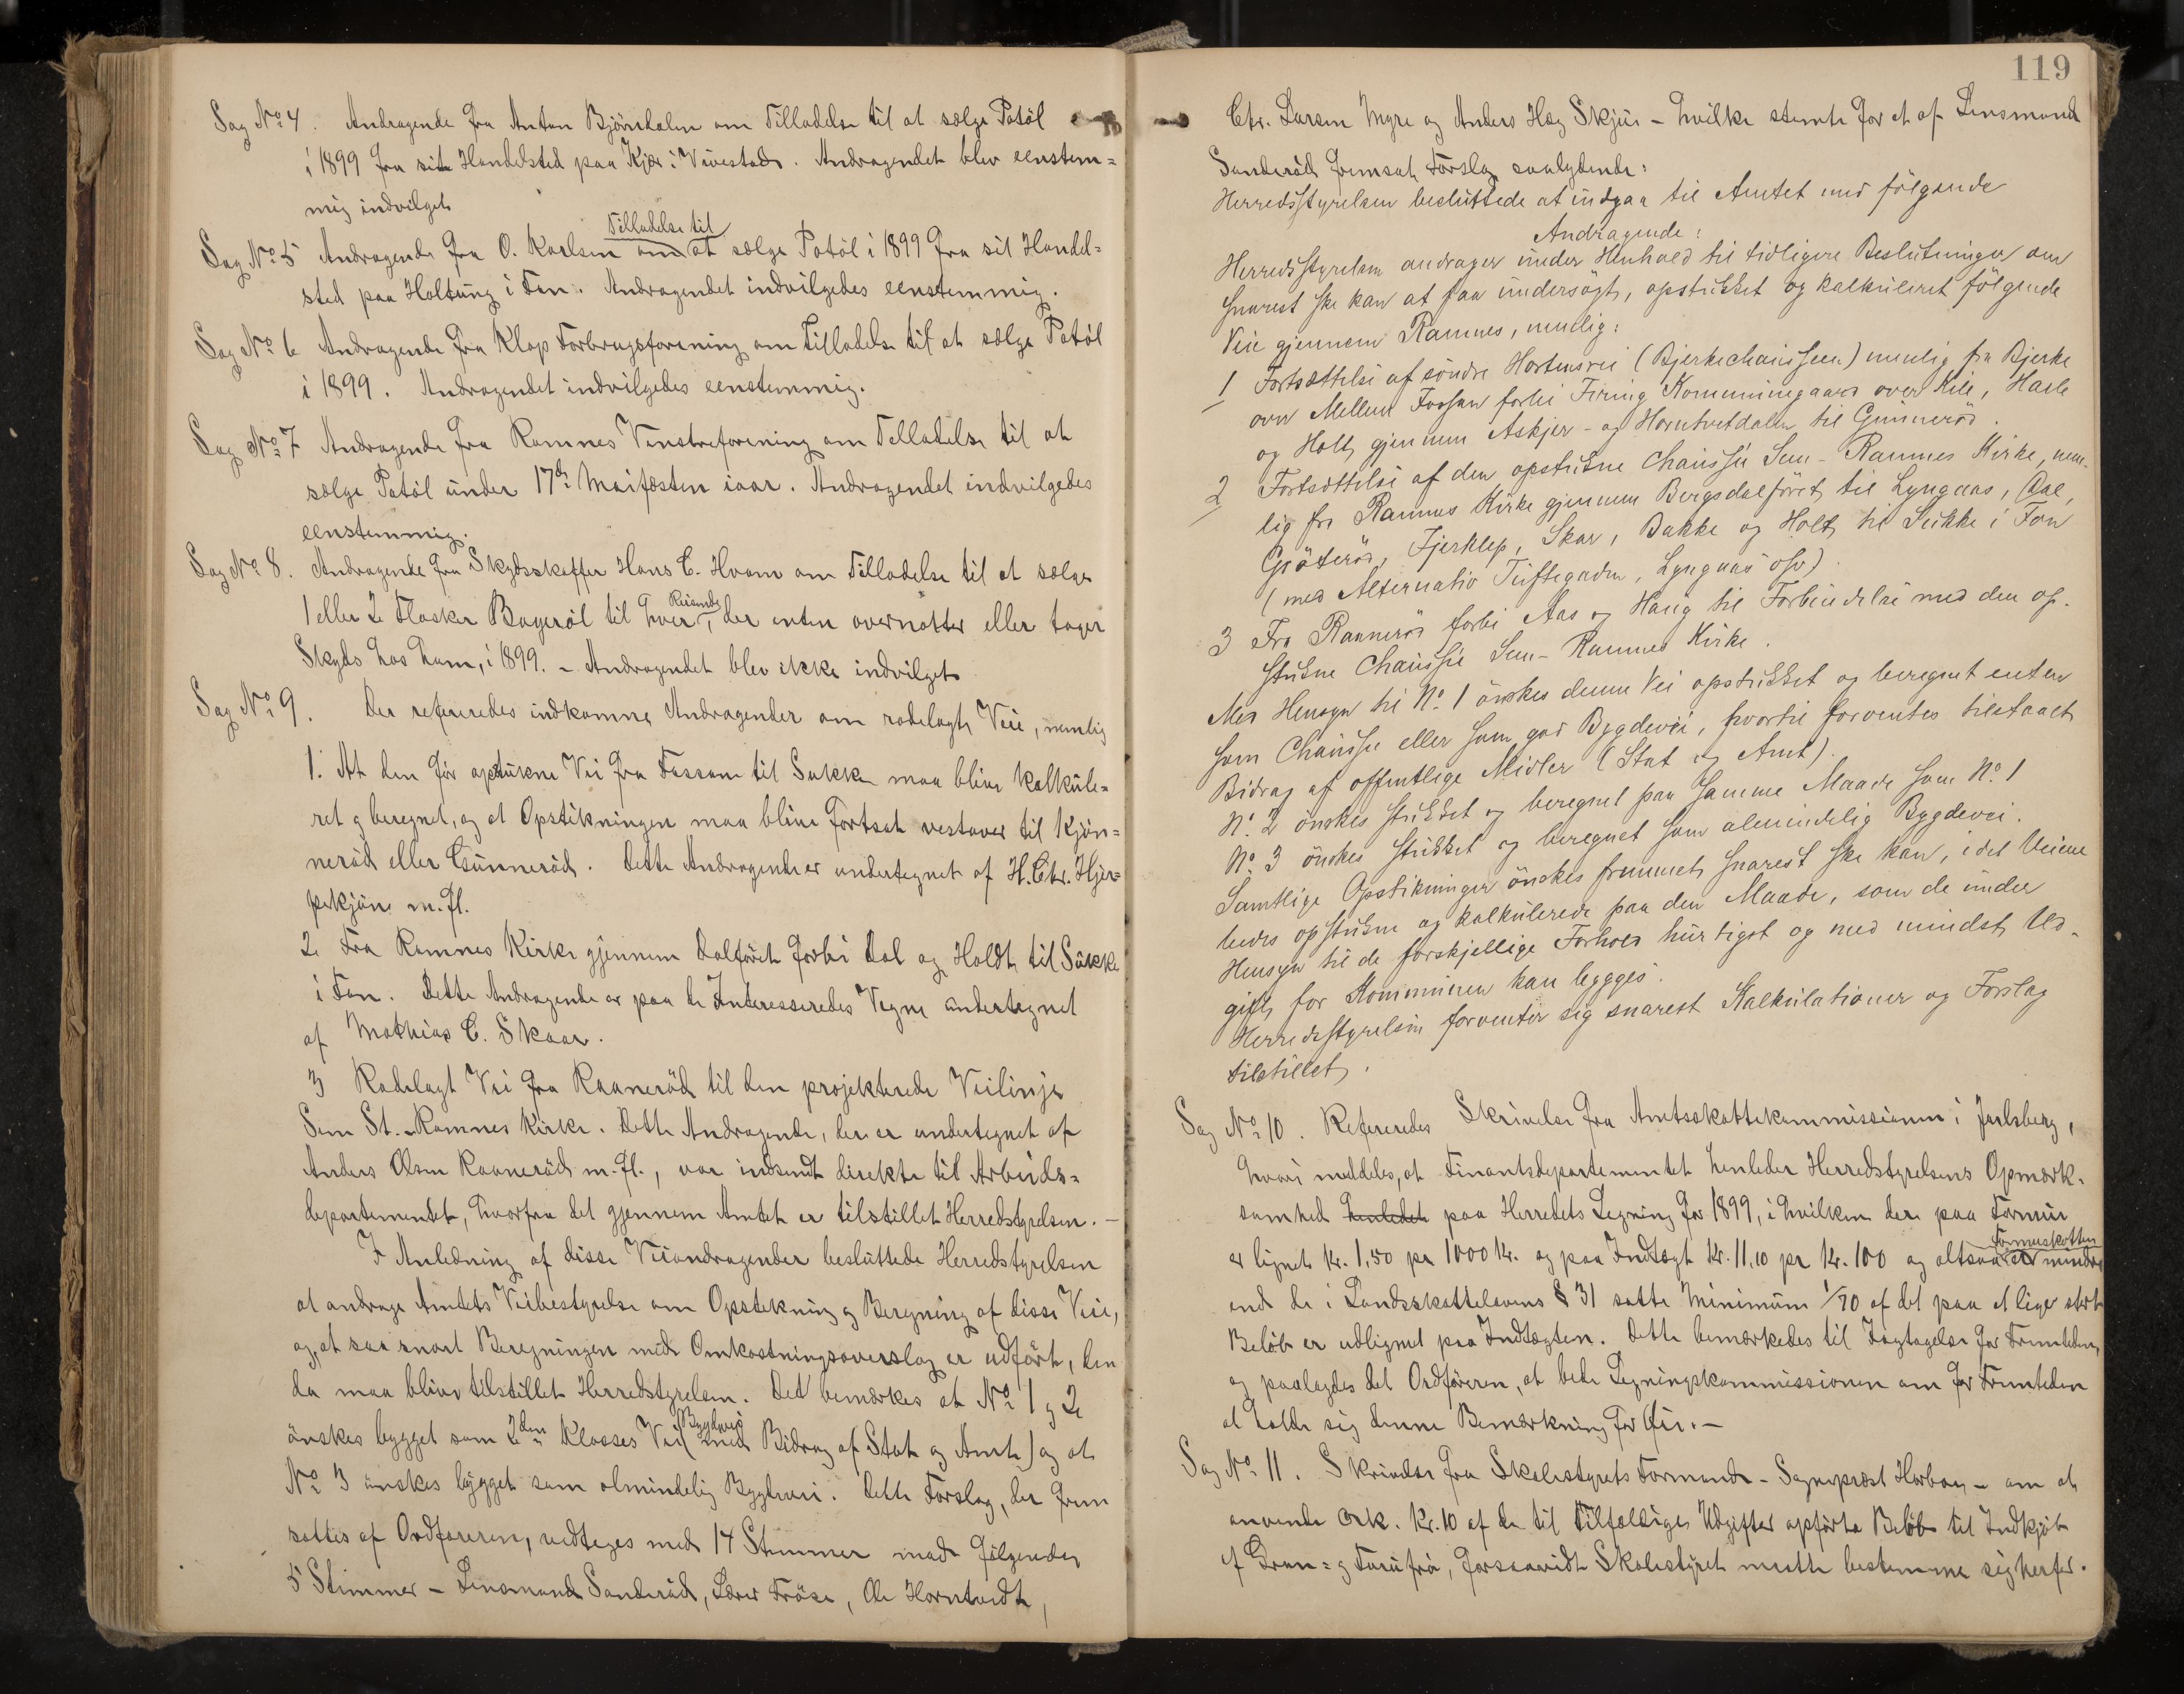 Sag No 4. Andragende fra Anton Björnholm om Tilladelse til at sælge Patöl
i 1899 fra sit Handelsted paa Kjær i Vivestad. Andragendet blev eenstem=
mig indvilget
Tilladelse til
Sag No 5 Andragende fra O. Karlsen om at sælge Patöl i 1899 fra sit Handel=
sted paa Holtung i Fon. Andragendet indvilgedes eenstemmig.
Sag No 6 Andragende fra Klop Forbrugsforening om Tilladelse til at sælge Patöl
i 1899. Andragendet indvilgedes eenstemmig.
Sag No 7 Andragende fra Ramnes Venstreforening om Tilladelse til at
sælge Patöl under 17de Maifesten iaar. Andragendet indvilgedes
eenstemmig.
Sag No 8. Andragende fra Skydsskaffer Hans C. Hvam om Tilladelse til at sælge
Reisende
1 eller 2 Flasker Bayeröl til hver, der enten overnatter eller tager
Skyds hos ham, i 1899. – Andragendet blev ikke indvilget
Sag No 9. Der refereredes indkomne Andragender om rodelagte Veie, nemlig
1. At den før opstukne Vei fra Fossane til Sukke maa blive kalkule=
ret og beregnet, og at Opstikningen maa blive fortsat vestover til Kjön=
neröd eller Gunneröd. Dette Andragende er undertegnet af H. Chr. Hjer=
pekjön m. fl.
2 Fra Ramnes Kirke gjennem Dalföret forbi Dal og Holdt til Sukke
i Fon. Dette Andragende er paa de Interesseredes Vegne undertegnet
af Mathias C. Skaar.
3 Rodelagt Vei fra Raaneröd til den projekterede Veilinje
Sem St. – Ramnes Kirke. Dette Andragende, der er undertegnet af
Anders Olsen Raaneröd m. fl., var indsendt direkte til Arbeids=
departementet, hvorfra det gjennem Amtet er tilstillet Herredstyrelsen. –
I Anledning af disse Veiandragender besluttede Herredstyrelsen
at andrage Amtets Veibestyrelse om Opstikning og Beregning af disse Veie,
og, at saa snart Beregningen med Omkostningsoverslag er udfört, den
da maa blive tilstillet Herredstyrelsen. Det bemærkes at No 1 og 2
Bygdevei
önskes bygget som 2den Klasses Vei (med Bidrag af Stat og Amt) og at
No 3 önskes bygget som almindelig Bygdevei. Dette Forslag, der frem
sattes af Ordföreren, vedtoges med 14 Stemmer mod fölgende
5 Stemmer – Lensmand Sanderöd, Lærer Fröse, Ole Horntvedt,
119
Chr. Larsen Myre og Anders Høg Skjeie – hvilke stemte for et af Lensmand
Sanderöd fremsat Forslag saalydende:
Herredsstyrelsen besluttede at indgaa til Amtet med fölgende
Andragende:
Herredsstyrelsen andrager under Henhold til tidligere Beslutninger om
snarest ske kan at faa undersögt, opstukket og kalkuleret fölgende
Veie gjennem Ramnes, nemlig:
1 Fortsættelse af söndre Hortensvei (Bjerkechausseen) nemlig fra Bjerke
over Mellem Fossan forbi Firing Kommunegaard over Kile, Hasle
og Holt, gjennem Askjer- og Horntvetdalen til Gunneröd.
2 Fortsættelse af den opstukne Chaussee Sem – Ramnes Kirke, nem-
lig fra Ramnes Kirke gjennem Bergsdalföret til Lyngaas, Dal,
Gjöteröd, Fjerklep, Skar, Bakke og Holt til Sukke i Fon
(med Alternativ Tuftegaden, Lyngaas osv).
3 Fra Raaneröd forbi Aas og Haug til Forbindelse med den op-
stukne Chaussee Sem – Ramnes Kirke.
Med Hensyn til No. 1 önskes denne Vei opstukket og beregnet enten
som Chaussee eller som god Bygdevei, hvortil forventes tilstaaet
Bidrag af offentlige Midler (Stat og Amt).
No. 2 önskes stukket og beregnet paa samme Maade som No. 1
No. 3 önskes stukket og beregnet som almindelig Bygdevei.
Samtlige Opstikninger önskes fremmet snarest ske kan, idet Veiene
bedes opstukne og kalkulerede paa den Maade, som de under
Hensyn til de forskjellige Forhold hurtigst og med mindst Ud-
gift for Kommunen kan bygges.
Herredsstyrelsen forventer sig snarest Kalkulationer og Forslag
tilstillet.
Sag No 10. Refereredes Skrivelse fra Amtsskattekommissionen i Jarlsberg,
hvori meddeles, at Finantsdepartementet henleder Herredstyrelsens Opmærk-
somhed henledet paa Herredets Ligning for 1899, i hvilken der paa Formue
Formuskatten
er lignet Kr. 1,50 pr 1000 Kr. og paa Indtægt Kr. 11,10 pr Kr. 100 og altsaa er mindre
end de i Landsskattelovens § 31 satte Minimum 1/70 af det paa et lige stort
Belöb er udlignet paa Indtægten. Dette bemærkedes til Iagttagelse for Fremtiden,
og paalagdes det Ordföreren, at bede Ligningskommissionen om for Fremtiden
at holde sig denne Bemærkning for Öie. –
Sag No 11. Skrivelse fra Skolestyrets Formand – Sogneprest Horboe – om at
anvende cirk. Kr. 10 af de til tilfældige Udgifter opförte Belöb til Indkjöb
af Gran= og Furufrö, forsaavidt Skolestyret maatte bestemme sig herfor.